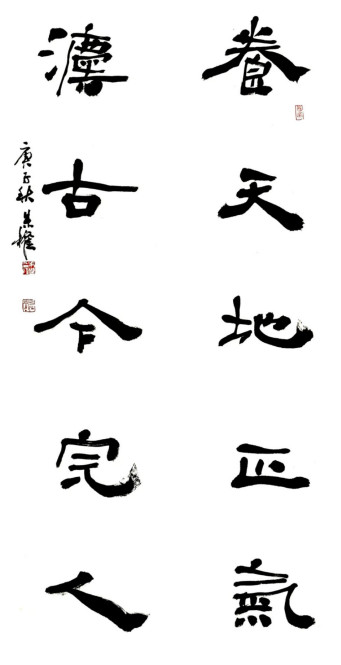 養天地正氣
灋古今完人
庚子秋